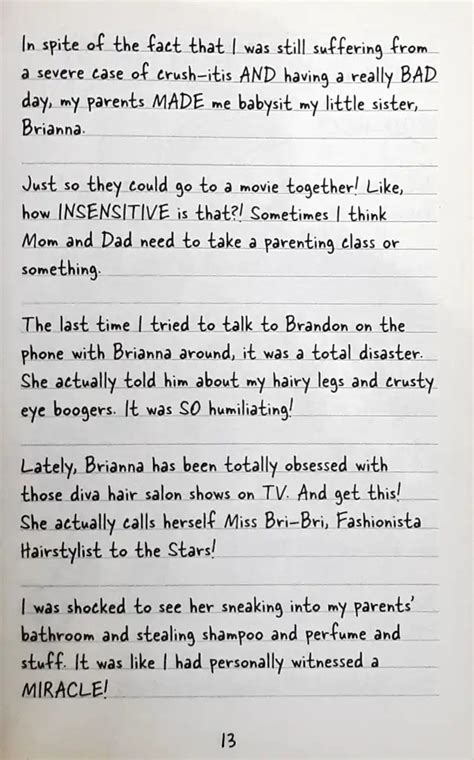 In spite of the fact that I was still suffering from
a severe case of crush-itis AND having a really BAD
day, my parents MADE me babysit my little sister,
Brianna.
Just so they could go to a movie together! Like,
how INSENSITIVE is that?! Sometimes I think
Mom and Dad need to take a parenting class or
something.
The last time I tried to talk to Brandon on the
phone with Brianna around, it was a total disaster.
She actually told him about my hairy legs and crusty
eye boogers. It was SO humiliating!
Lately, Brianna has been totally obsessed with
those diva hair salon shows on TV. And get this!
She actually calls herself Miss Bri-Bri, Fashionista
Hairstylist to the Stars!
I was shocked to see her sneaking into my parents'
bathroom and stealing shampoo and perfume and
stuff. It was like I had personally witnessed a
MIRACLE!
13